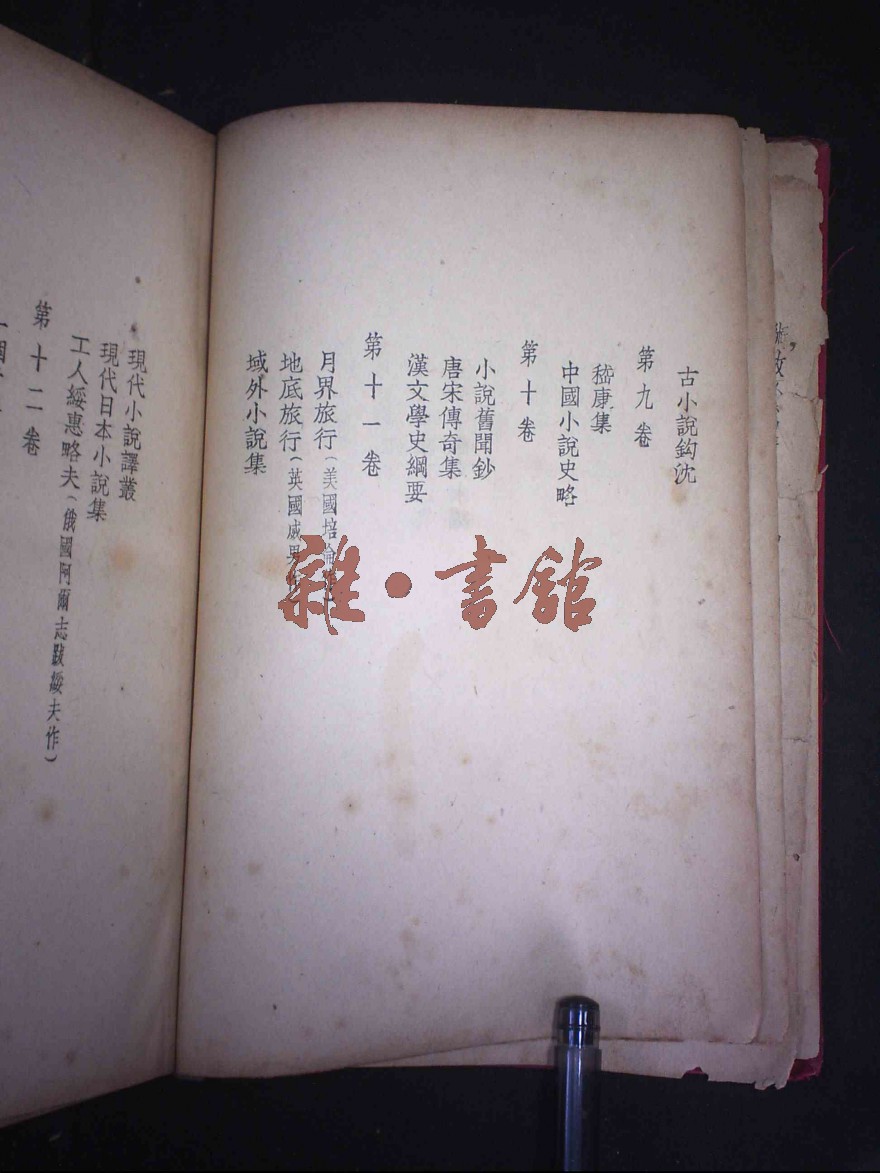 古小說鈎沈
第九卷
嵇康集
中國小說史略
第十卷
小說舊聞鈔
唐宋傳奇集
漢文學史綱要
第十一卷
月界旅行（美國培倫
地底旅行（英國威男
域外小說集
現代小說譯叢
現代日本小說集
工人綏惠略夫（俄國阿爾志跋綏夫作）
第十二卷
雜·書館